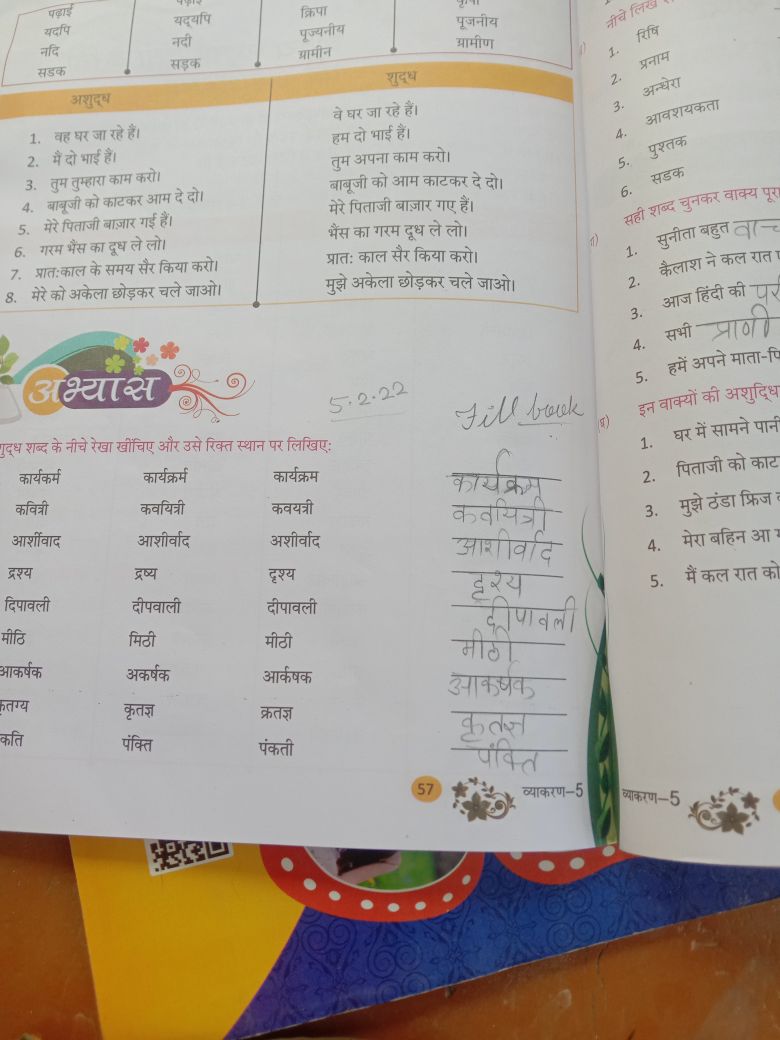 पढ़ाई
यदपि यद्यपि क्रिपा
नदि नदी पूज्यनीय पूजनीय
सडक सड़क ग्रामीन ग्रामीण
अशुद्ध शुद्ध
1. वह घर जा रहे हैं। वे घर जा रहे हैं।
2. मैं दो भाई हैं। हम दो भाई हैं।
3. तुम तुम्हारा काम करो। तुम अपना काम करो।
4. बाबूजी को काटकर आम दे दो। बाबूजी को आम काटकर दे दो।
5. मेरे पिताजी बाज़ार गई हैं। मेरे पिताजी बाज़ार गए हैं।
6. गरम भैंस का दूध ले लो। भैंस का गरम दूध ले लो।
7. प्रात:काल के समय सैर किया करो। प्रात: काल सैर किया करो।
8. मेरे को अकेला छोड़कर चले जाओ। मुझे अकेला छोड़कर चले जाओ।
अभ्यास
5.2.22
Fill book
शब्द के नीचे रेखा खींचिए और उसे रिक्त स्थान पर लिखिए:
कार्यकर्म कार्यक्रर्म कार्यक्रम कार्यक्रम
कवित्री कवयित्री कवयत्री कवयित्री
आर्शीवाद आशीर्वाद अशीर्वाद आशीर्वाद
द्रश्य द्रष्य दृश्य दृश्य
दिपावली दीपवाली दीपावली दीपावली
मीठि मिठी मीठी मीठी
आकर्षक अकर्षक आर्कषक आकर्षक
कृतज्ञ क्रतज्ञ कृतज्ञ
पंक्ति पंकती पंक्ति
57 व्याकरण–5
नीचे
1. रिषि
2. प्रनाम
3. अन्धेरा
4. आवशयकता
5. पुश्तक
6. सडक
सही शब्द चुनकर वाक्य
1. सुनीता बहुत
2. कैलाश ने कल रात
3. आज हिंदी की
4. सभी प्राणी
5. हमें अपने
इन वाक्यों की
1. घर में सामने
2. पिताजी को
3. मुझे ठंडा फ्रिज
4. मेरा बहिन आ
5. मैं कल रात को
व्याकरण–5